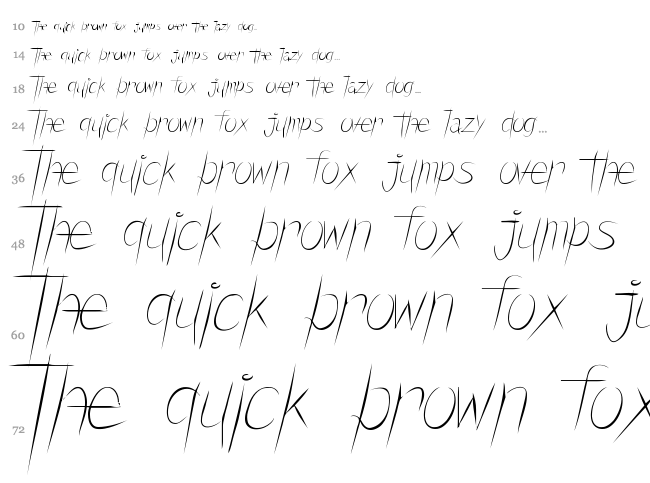 10 The quick brown fox jumps over the lazy dog...
14 The quick brown fox jumps over the lazy dog...
18 The quick brown fox jumps over the lazy dog...
24 The quick brown fox jumps over the lazy dog...
36 The quick brown fox jumps over the
48 The quick brown fox jumps
60 The quick brown fox ju
72 The quick brown fox